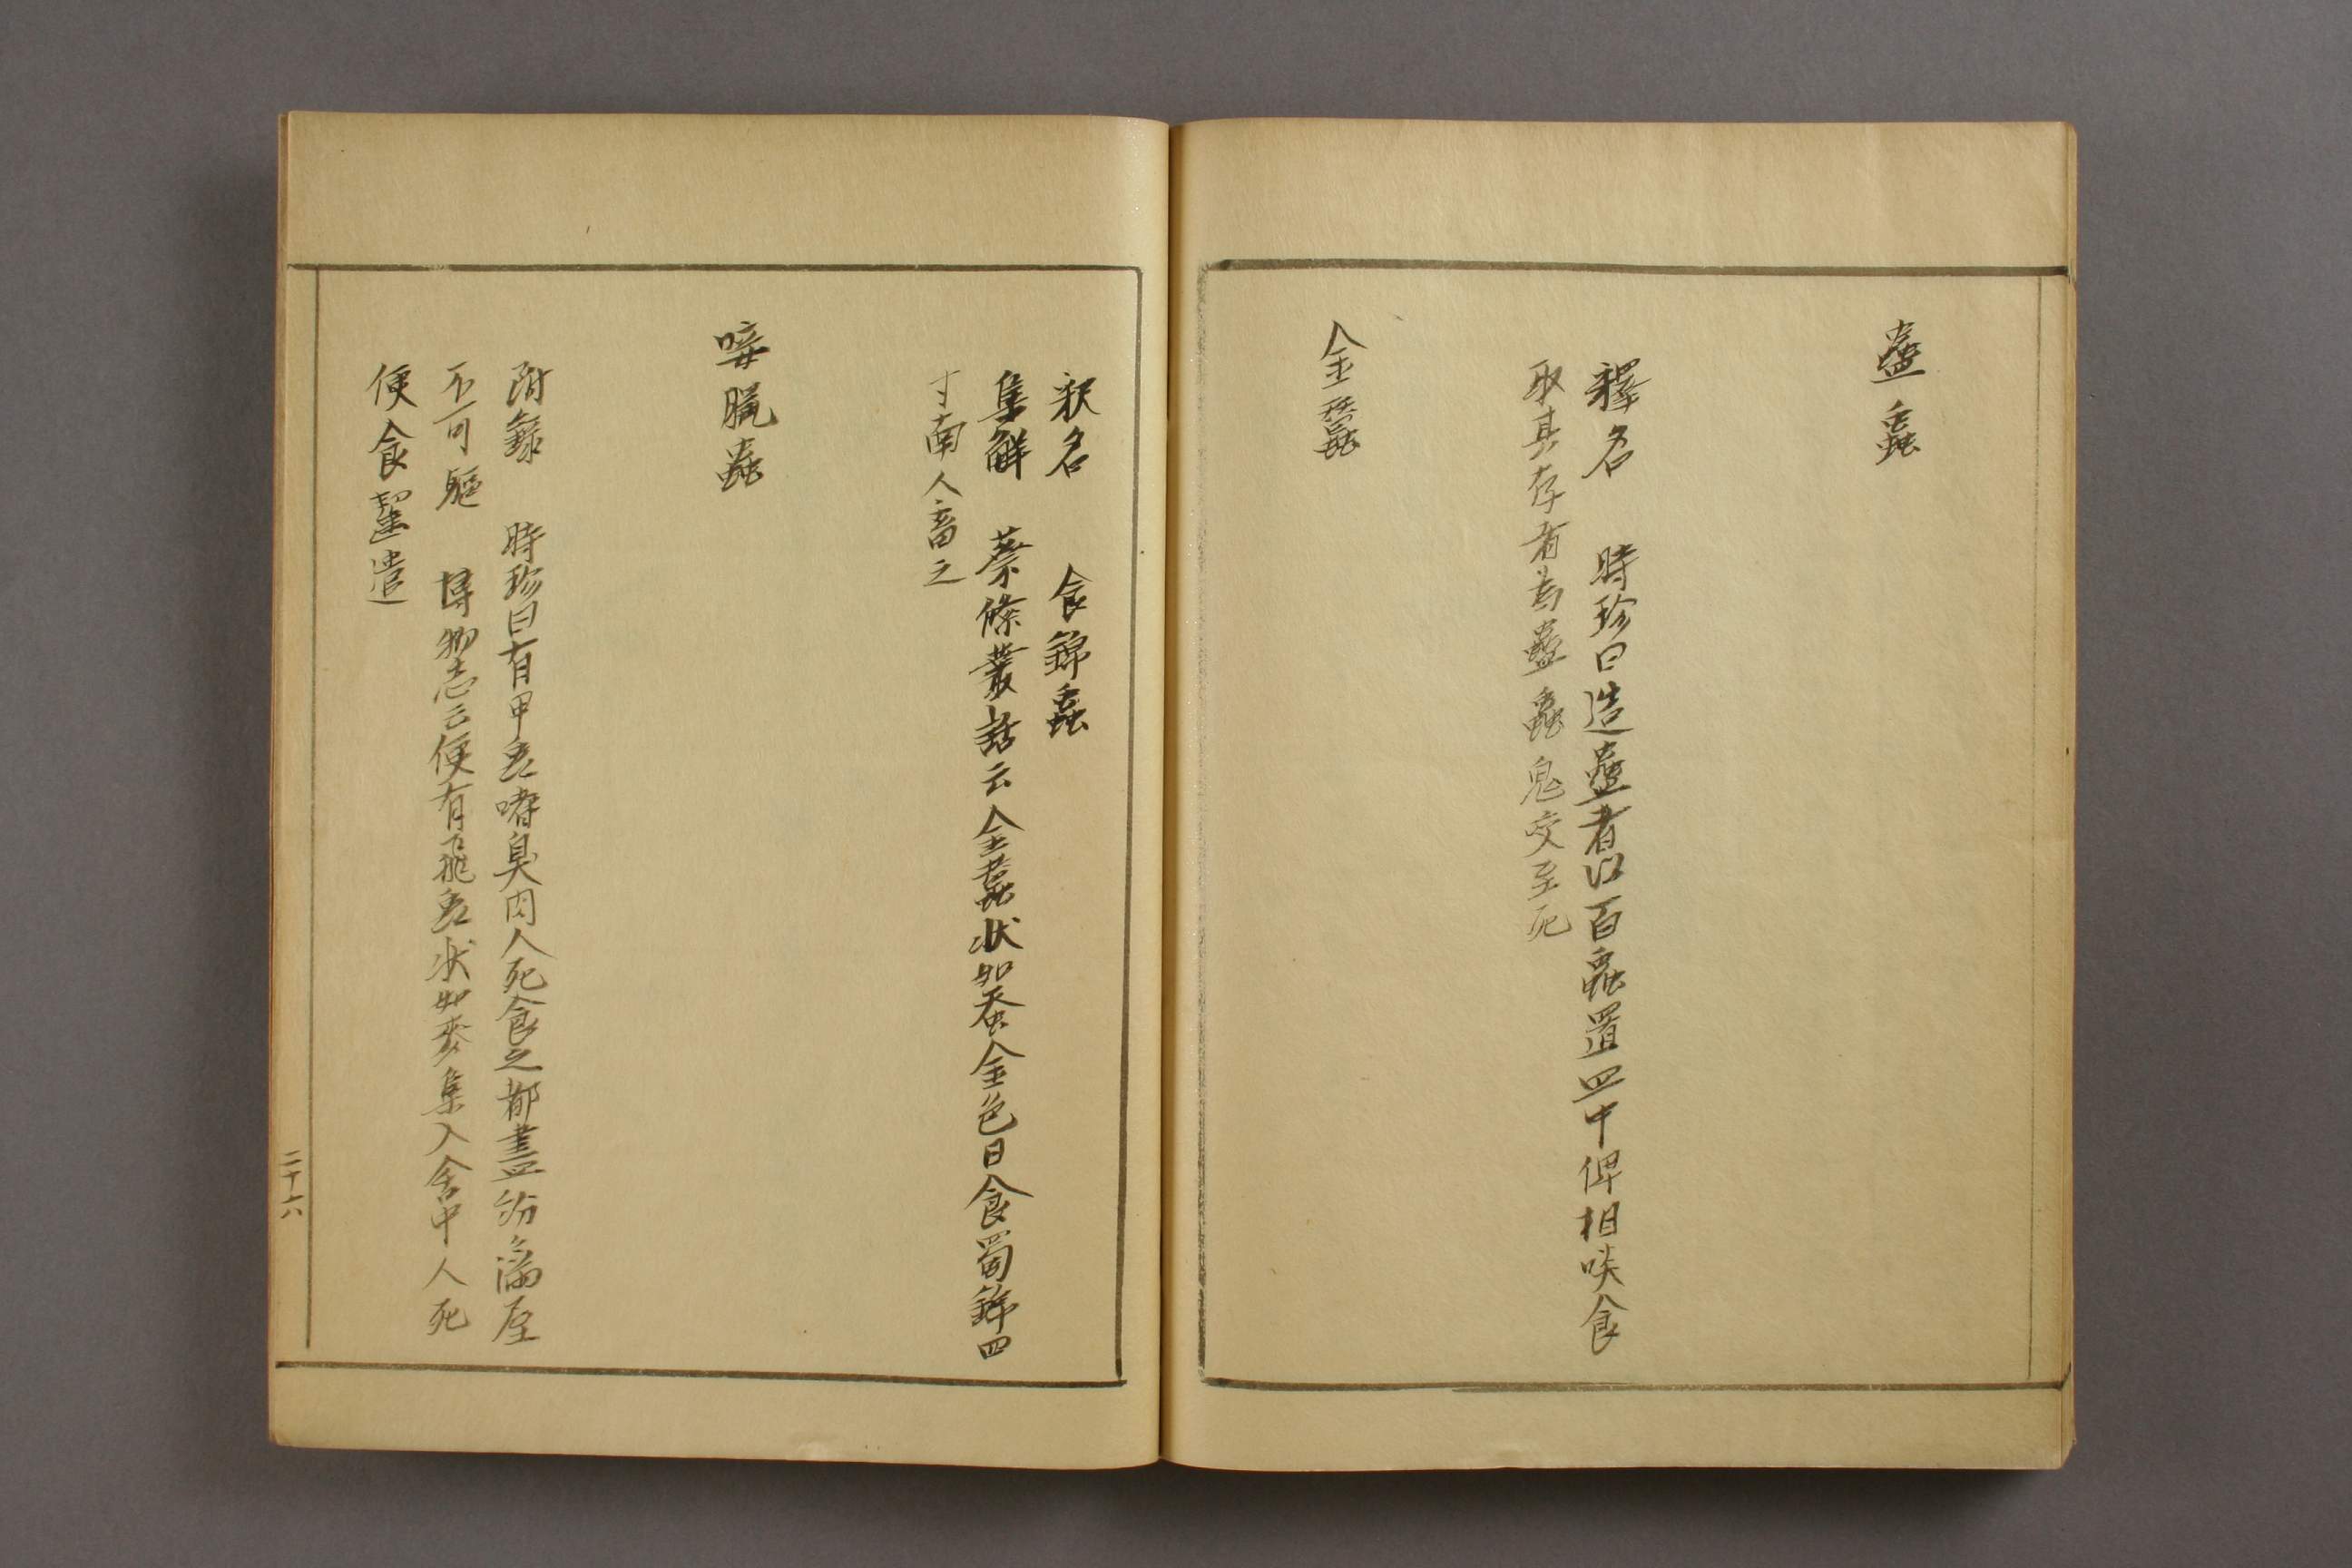 蠱蟲
釋名 時珍曰造蠱者以百蟲置皿中俾相啖食
取其存者為蠱蟲鬼交至死
金蠶
釈名 食錦蟲
集觧 蔡絛叢話云金蠶状如蚕金色日食蜀錦四
寸南人畜之
唼臘蟲
附録 時珍曰有甲虫嗜臭肉人死食之都盡紛滿屋
不可驅 博物志云便有飛虫状如麥集入舍中人死
便食遣
二十六